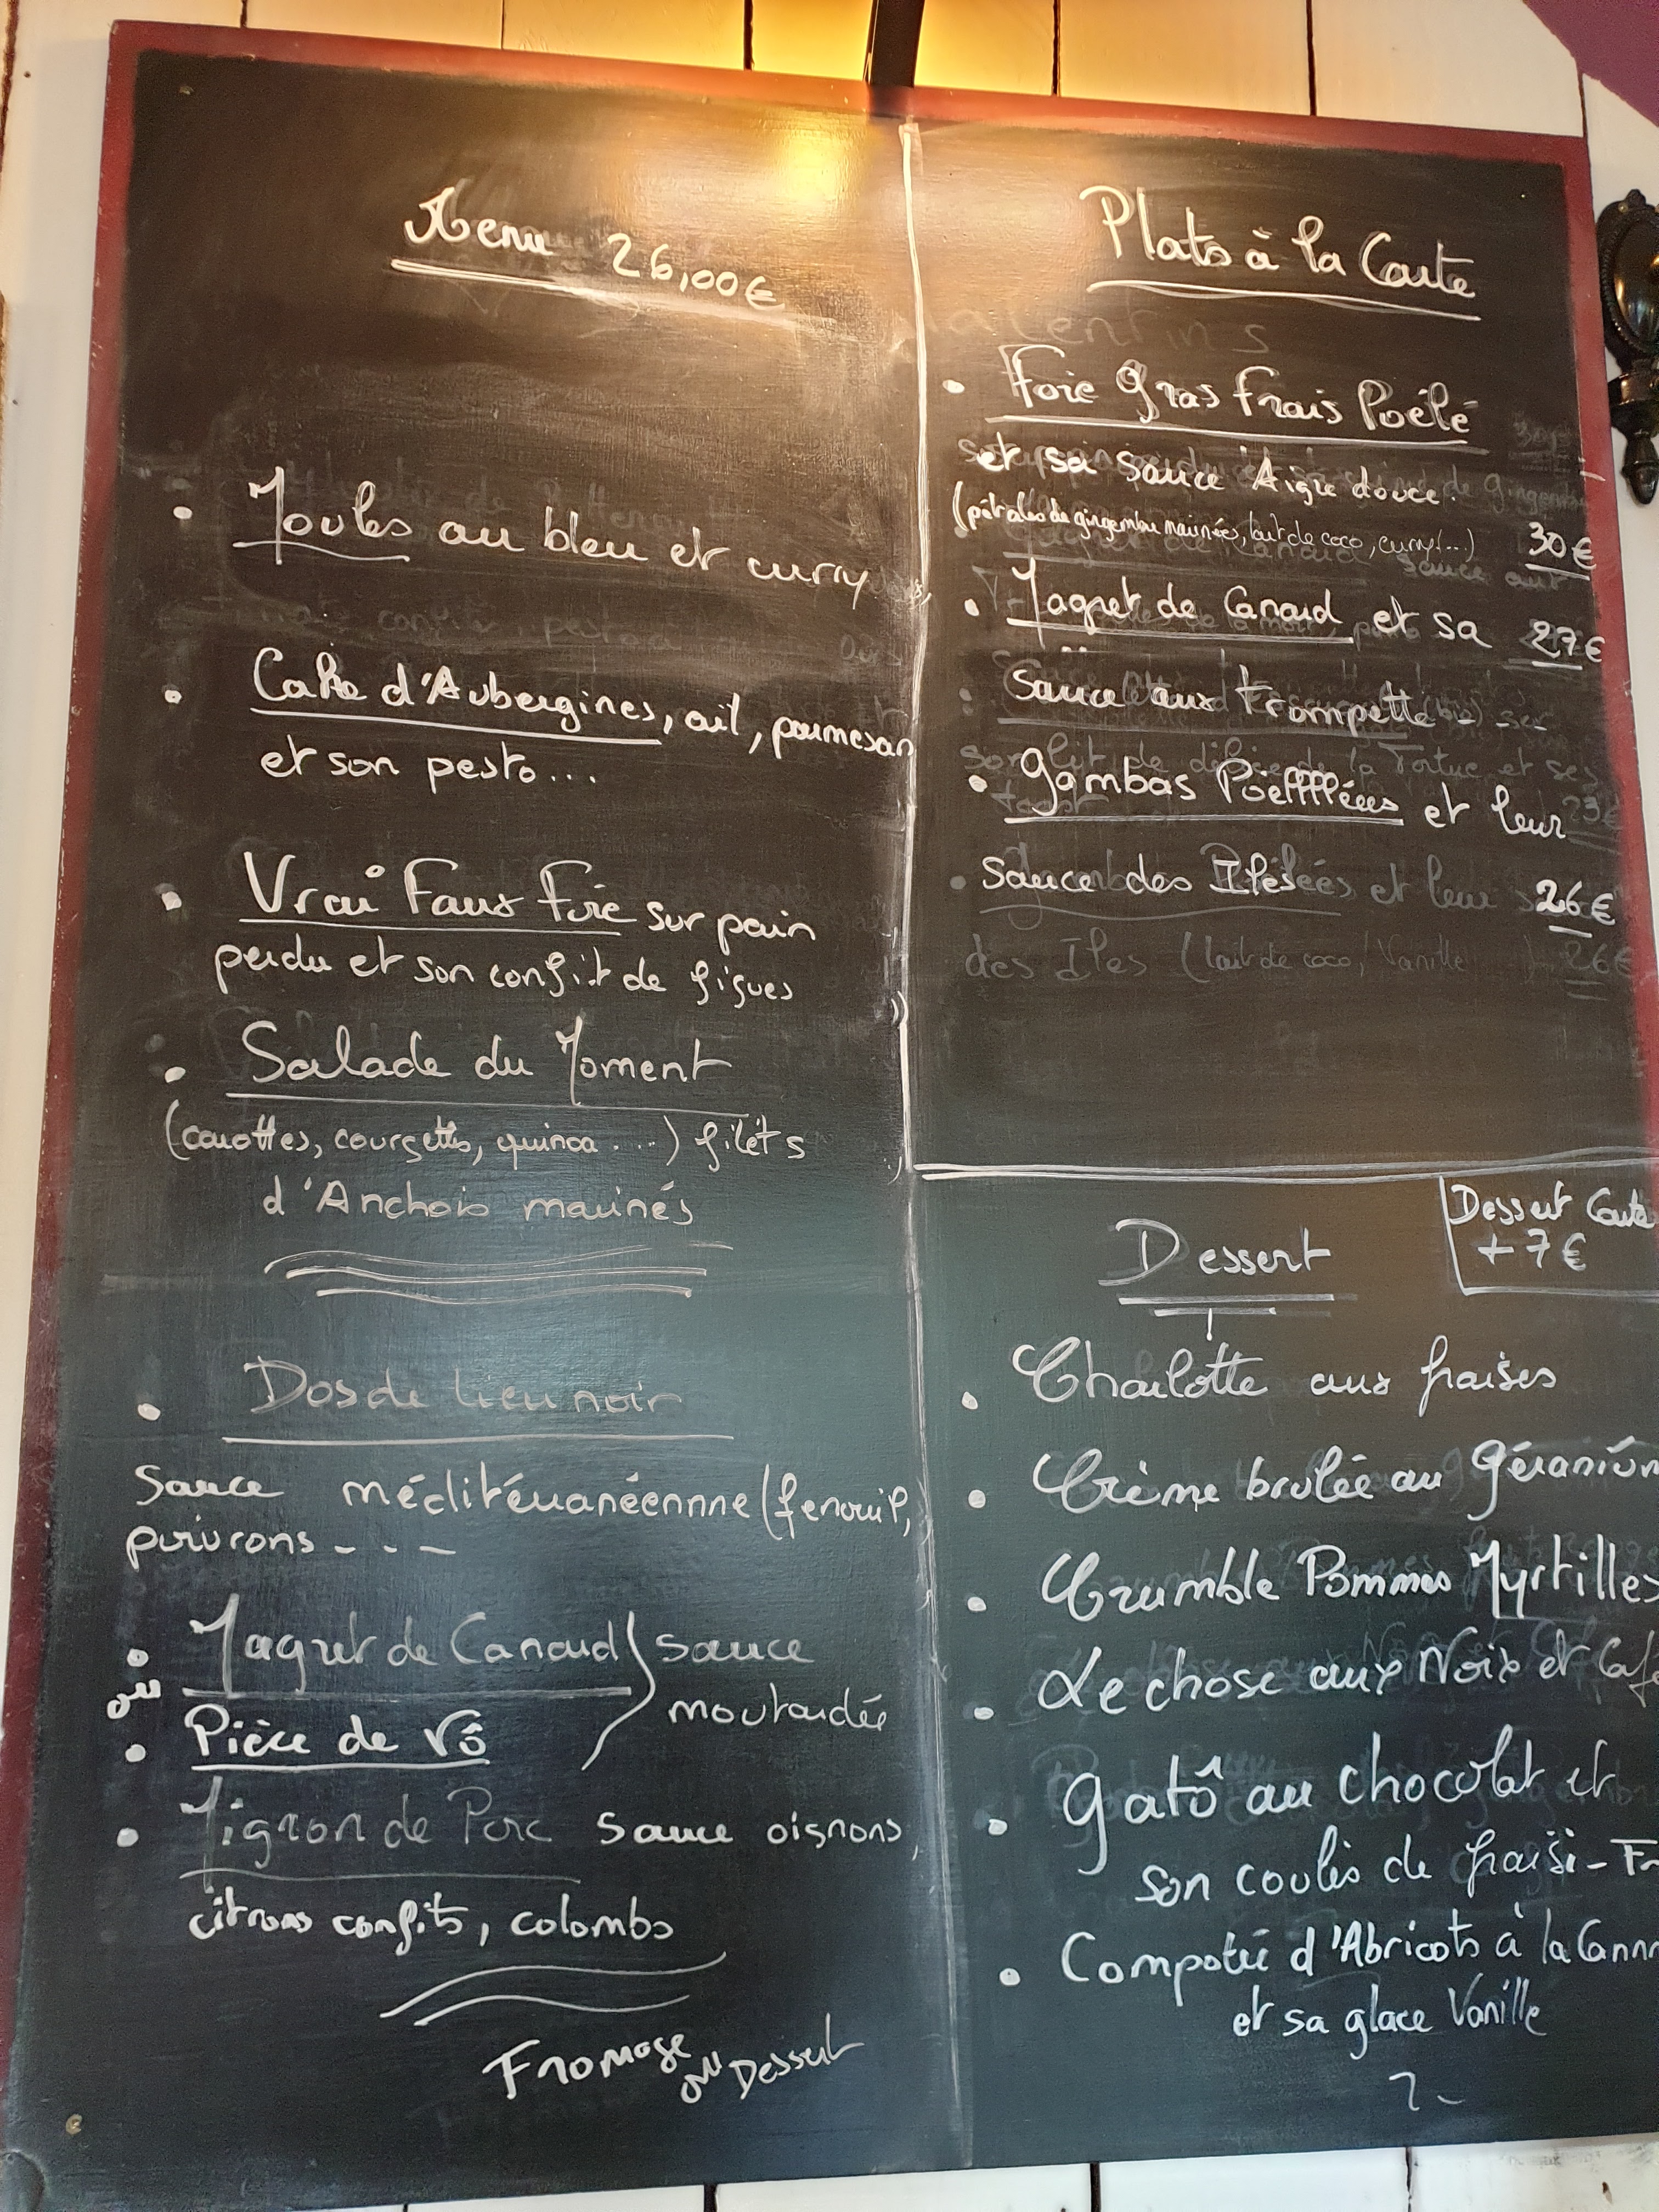 Menu 26,00€
• Moules au bleu et curry
• Cake d'Aubergines, ail, parmesan
et son pesto...
• Vrai Faux Foie sur pain
perdu et son confit de figues
• Salade du Moment
(carottes, courgettes, quinoa ...) filets
d'Anchois marinés
• Dos de lieu noir
Sauce méditérranéennne (fenouil,
poivrons - - -
• Magret de Canard
ou
• Pièce de Vô
sauce
moutardée
• Mignon de Porc sauce oignons,
citrons confits, colombo
Fromage ou Dessert
Plats à la Carte
• Foie Gras Frais Poêlé
et sa sauce Aigre douce
(pétales de gingembre marinées, lait de coco, curry...) 30€
• Magret de Canard et sa 27€
sauce aux trompette - - -
• Gambas Poêllllées et leur
sauce des Iles 26€
des Iles (lait de coco, Vanille ) 26€
Dessert
Dessert Carte
+ 7€
• Charlotte aux fraises
• Crème brulée au Géranium
• Crumble Pommes Myrtilles
• Le chose aux Noix et Café
• Gatô au chocolat et
son coulis de fraisi-
• Compotée d'Abricots à la
et sa glace Vanille